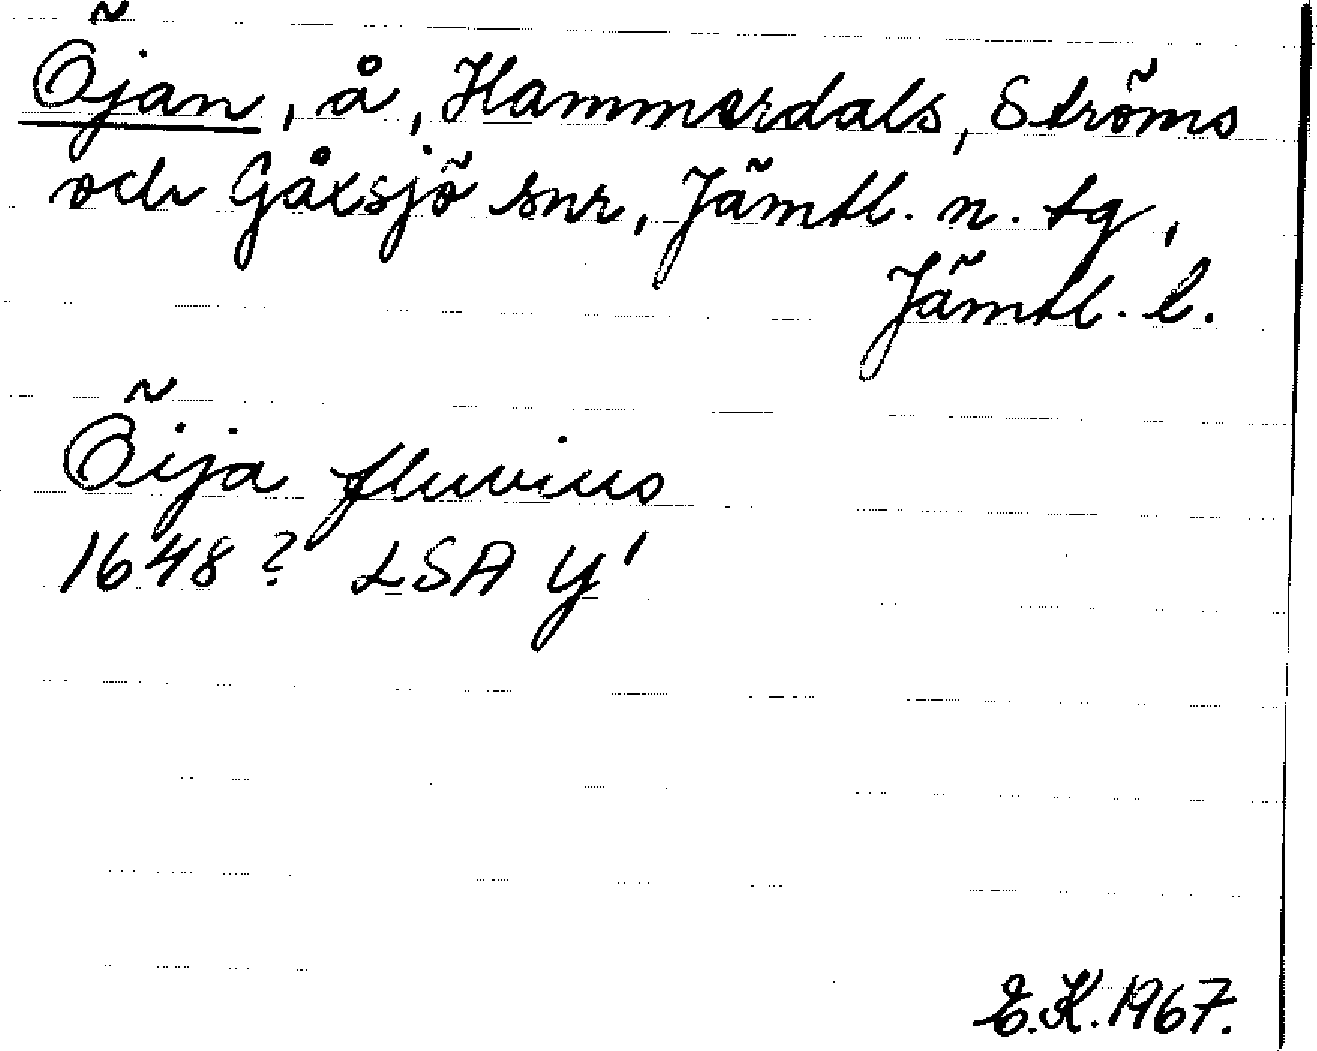 Öjan, å, Hammerdals, Ströms
och Gåxsjö snr, Jämtl. n. tg,
Jämtl. l.
Öija fluvius
1648? LSA Y¹
E.K. 1967.